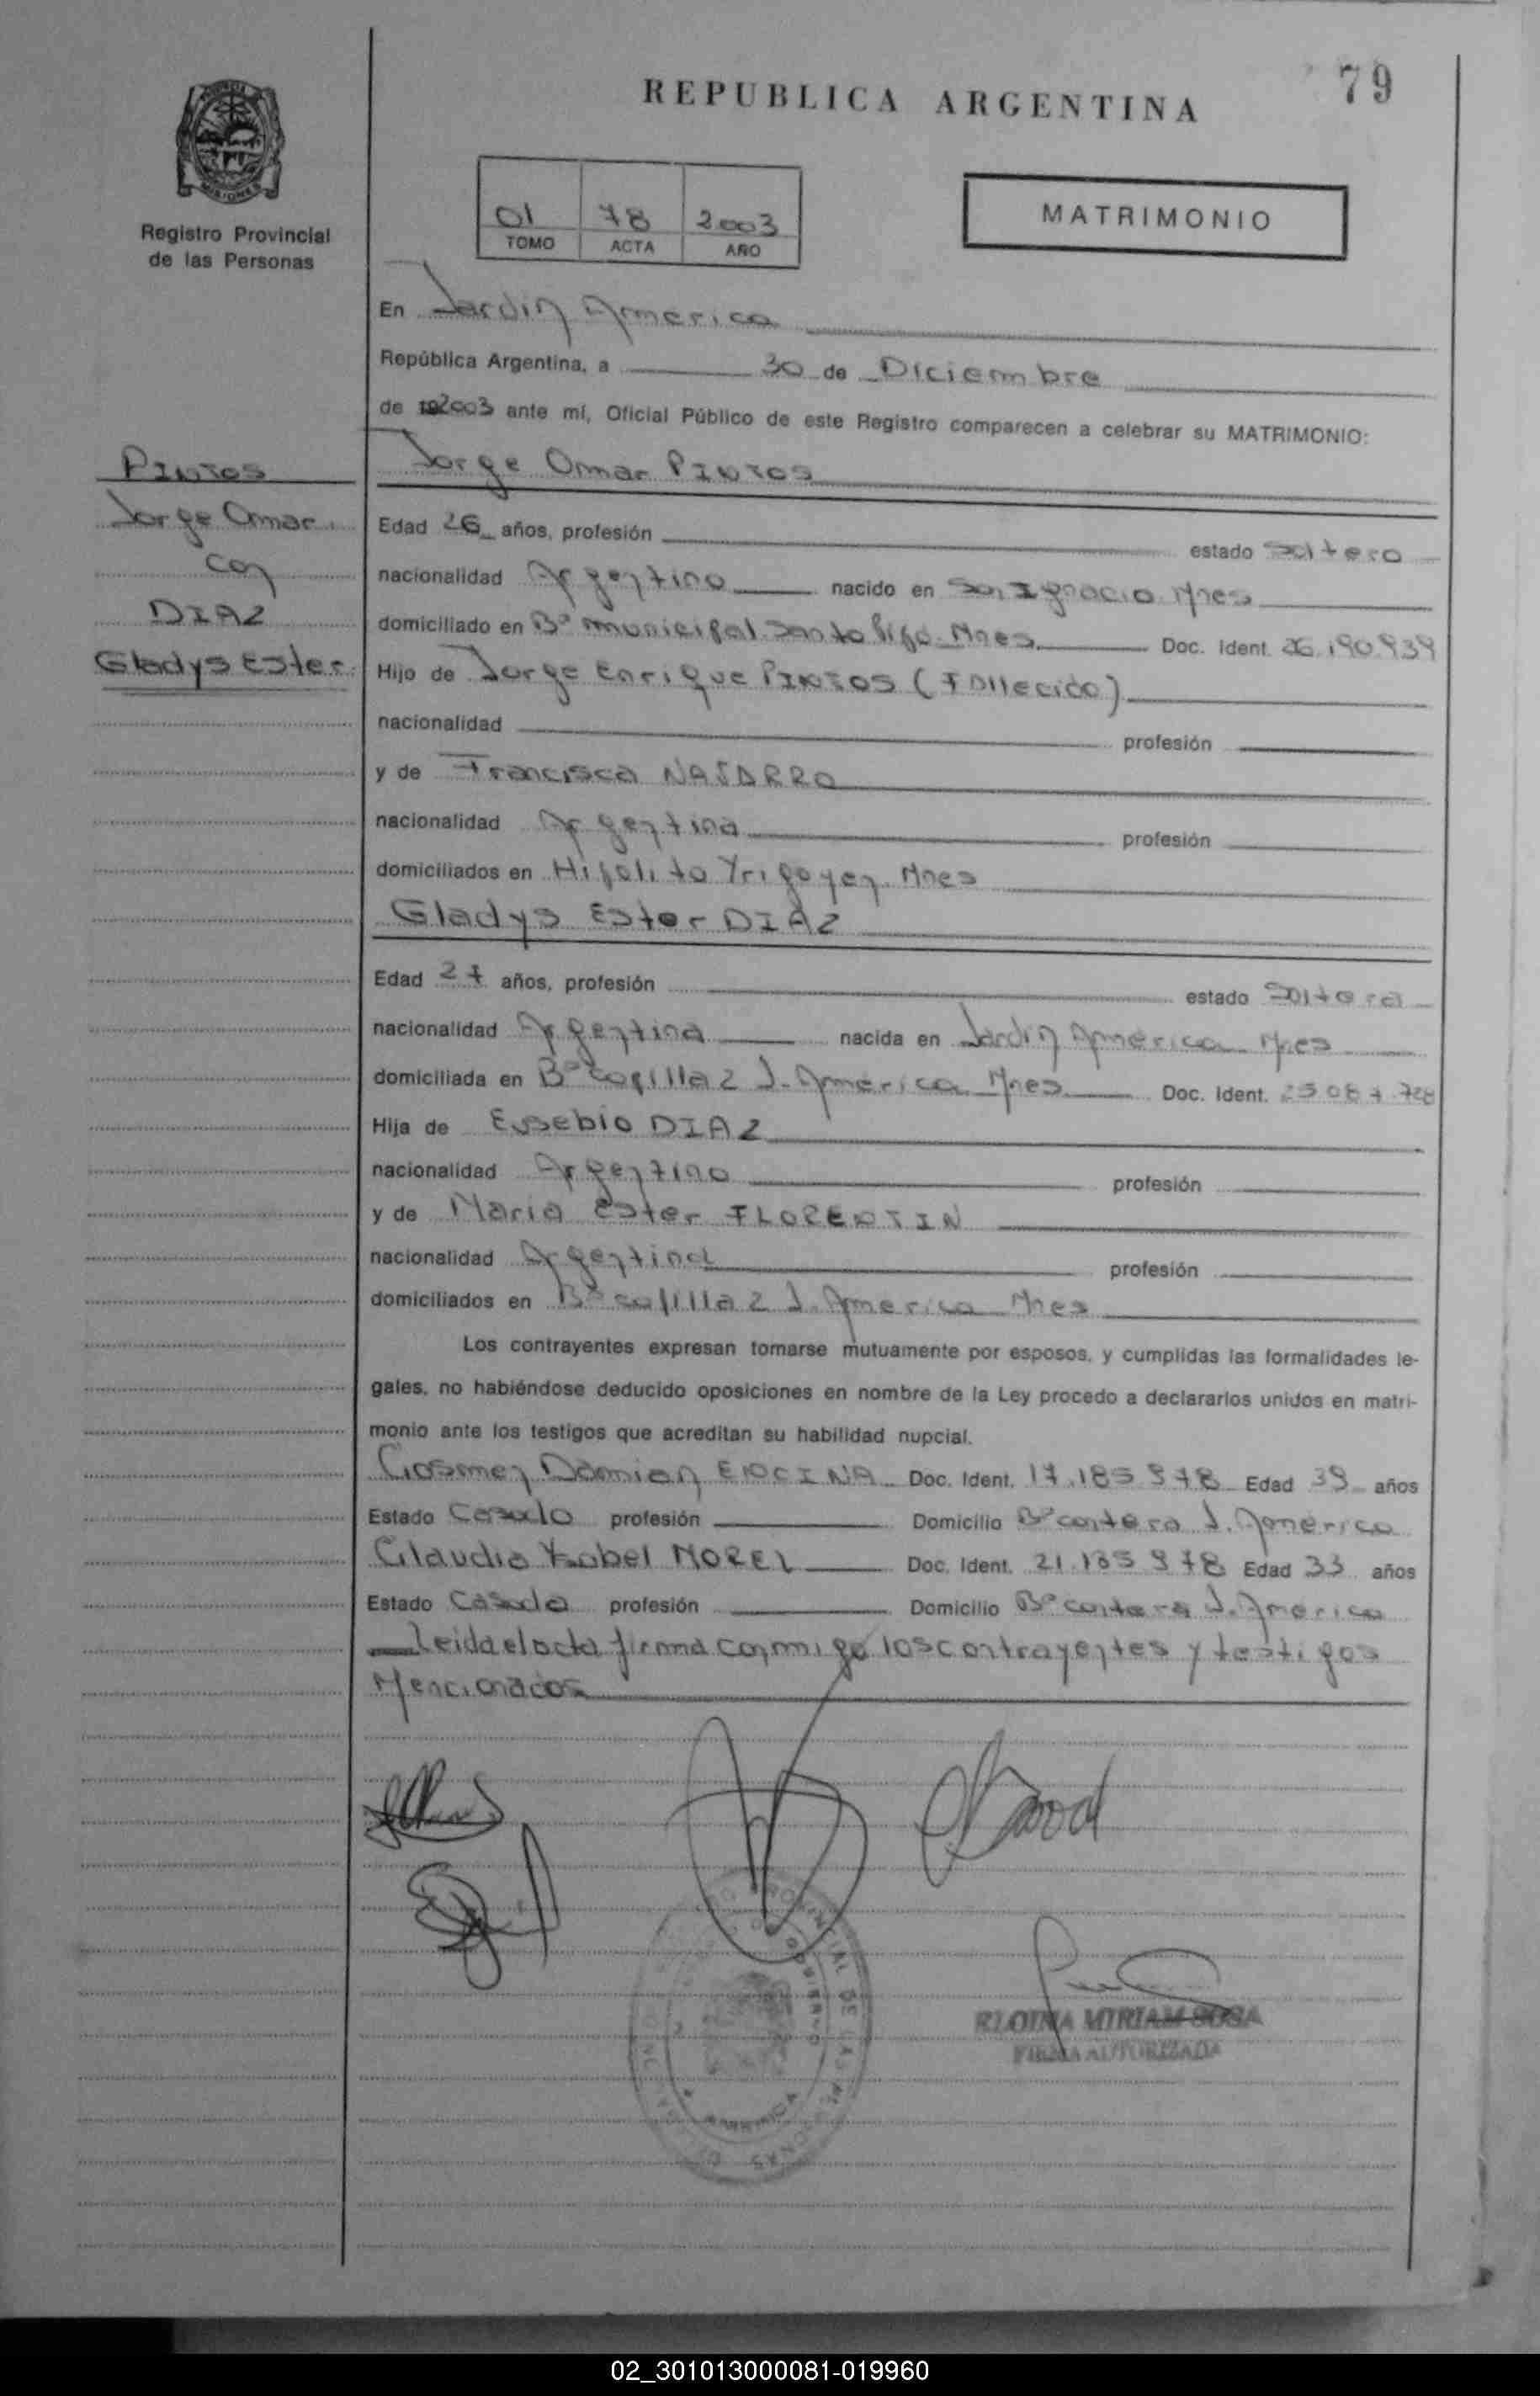 79
REPUBLICA ARGENTINA
MISIONES
Registro Provincial
de las Personas
01 78 2003
TOMO ACTA AÑO
MATRIMONIO
En Jardin America
República Argentina, a 30 de Diciembre
de 192003 ante mí, Oficial Público de este Registro comparecen a celebrar su MATRIMONIO:
PINTOS
Jorge Omar
con
DIAZ
Gladys Ester
Jorge Omar PINTOS
Edad 26 años, profesión estado Soltero
nacionalidad Argentino nacido en San Ignacio Mnes
domiciliado en Bº Municipal Santo Pipo Mnes Doc. Ident. 26.190.939
Hijo de Jorge Enrique PINTOS (Fallecido)
nacionalidad profesión
y de Francisca NAVARRO
nacionalidad Argentina profesión
domiciliados en Hipolito Yrigoyen Mnes
Gladys Ester DIAZ
Edad 27 años, profesión estado Soltera
nacionalidad Argentina nacida en Jardin America Mnes
domiciliada en Bº Copilla 2 J. America Mnes Doc. Ident. 25 087 728
Hija de Eusebio DIAZ
nacionalidad Argentino profesión
y de Maria Ester FLORENTIN
nacionalidad Argentina profesión
domiciliados en Bº Copilla 2 J. America Mnes
Los contrayentes expresan tomarse mutuamente por esposos, y cumplidas las formalidades le-
gales, no habiéndose deducido oposiciones en nombre de la Ley procedo a declararlos unidos en matri-
monio ante los testigos que acreditan su habilidad nupcial.
Cosmen Damian ENCINA Doc. Ident. 17.185 978 Edad 39 años
Estado Casado profesión Domicilio Bº Cantera J. America
Claudia Ysabel MOREL Doc. Ident. 21.185 978 Edad 33 años
Estado Casada profesión Domicilio Bº Cantera J. America
Leida el acta firma conmigo los contrayentes y testigos
Mencionados
MIRIAM SOSA
FIRMA AUTORIZADA
02_301013000081-019960